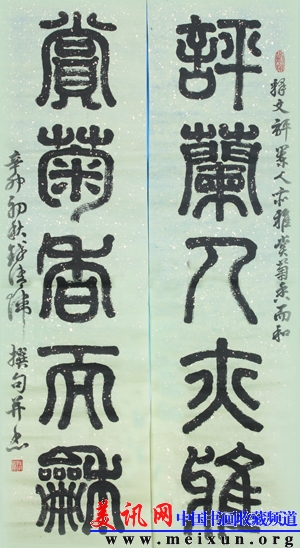 釋文評蘭人亦雅賞菊香而和
評蘭人亦雅
賞菊香而龢
辛卯初秋 撰句并書
美讯网 中国书画收藏频道
www.meixun.org